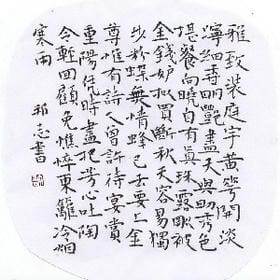 雅致裝庭宇黄花開淡
濘細香明艷盡天與助秀色
堪餐向曉自有真珠露剛被
金錢妒拟買斷秋天容易獨
步粉蝶無情蜂已去要上金
尊惟有詩人曾許待宴賞
重陽恁時盡把芳心吐陶
令輕回顧免憔悴東籬冷烟
寒雨
志書